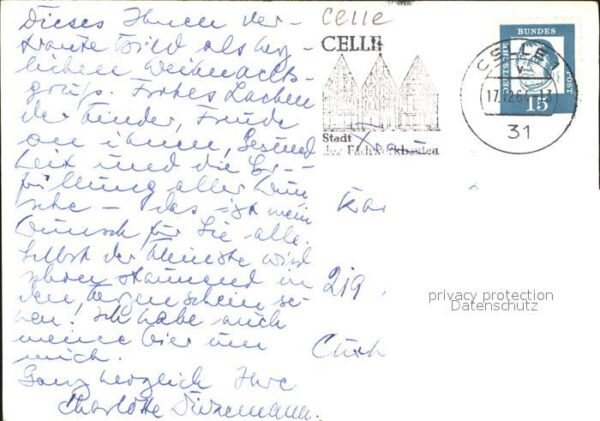 Dieses Ihnen ver-
traute Bild als herz-
lichen Weihnachts-
gruß. Frohes Lachen
der Kinder, Freude
an ihnen, Gesund
heit und die Er-
füllung aller Wün
sche – das ist mein
Wunsch für Sie alle.
Selbst der Kleinste wird
schon staunend in
den Kerzenschein se-
hen! Ich habe auch
meine hier um
mich.
Ganz herzlich Ihre
Charlotte
Celle
CELLE
Stadt
der Fachwerkbauten
Frau
CELLE
17.12.64
31
DEUTSCHE BUNDESPOST
15
Kar
2/9
privacy protection
Datenschutz